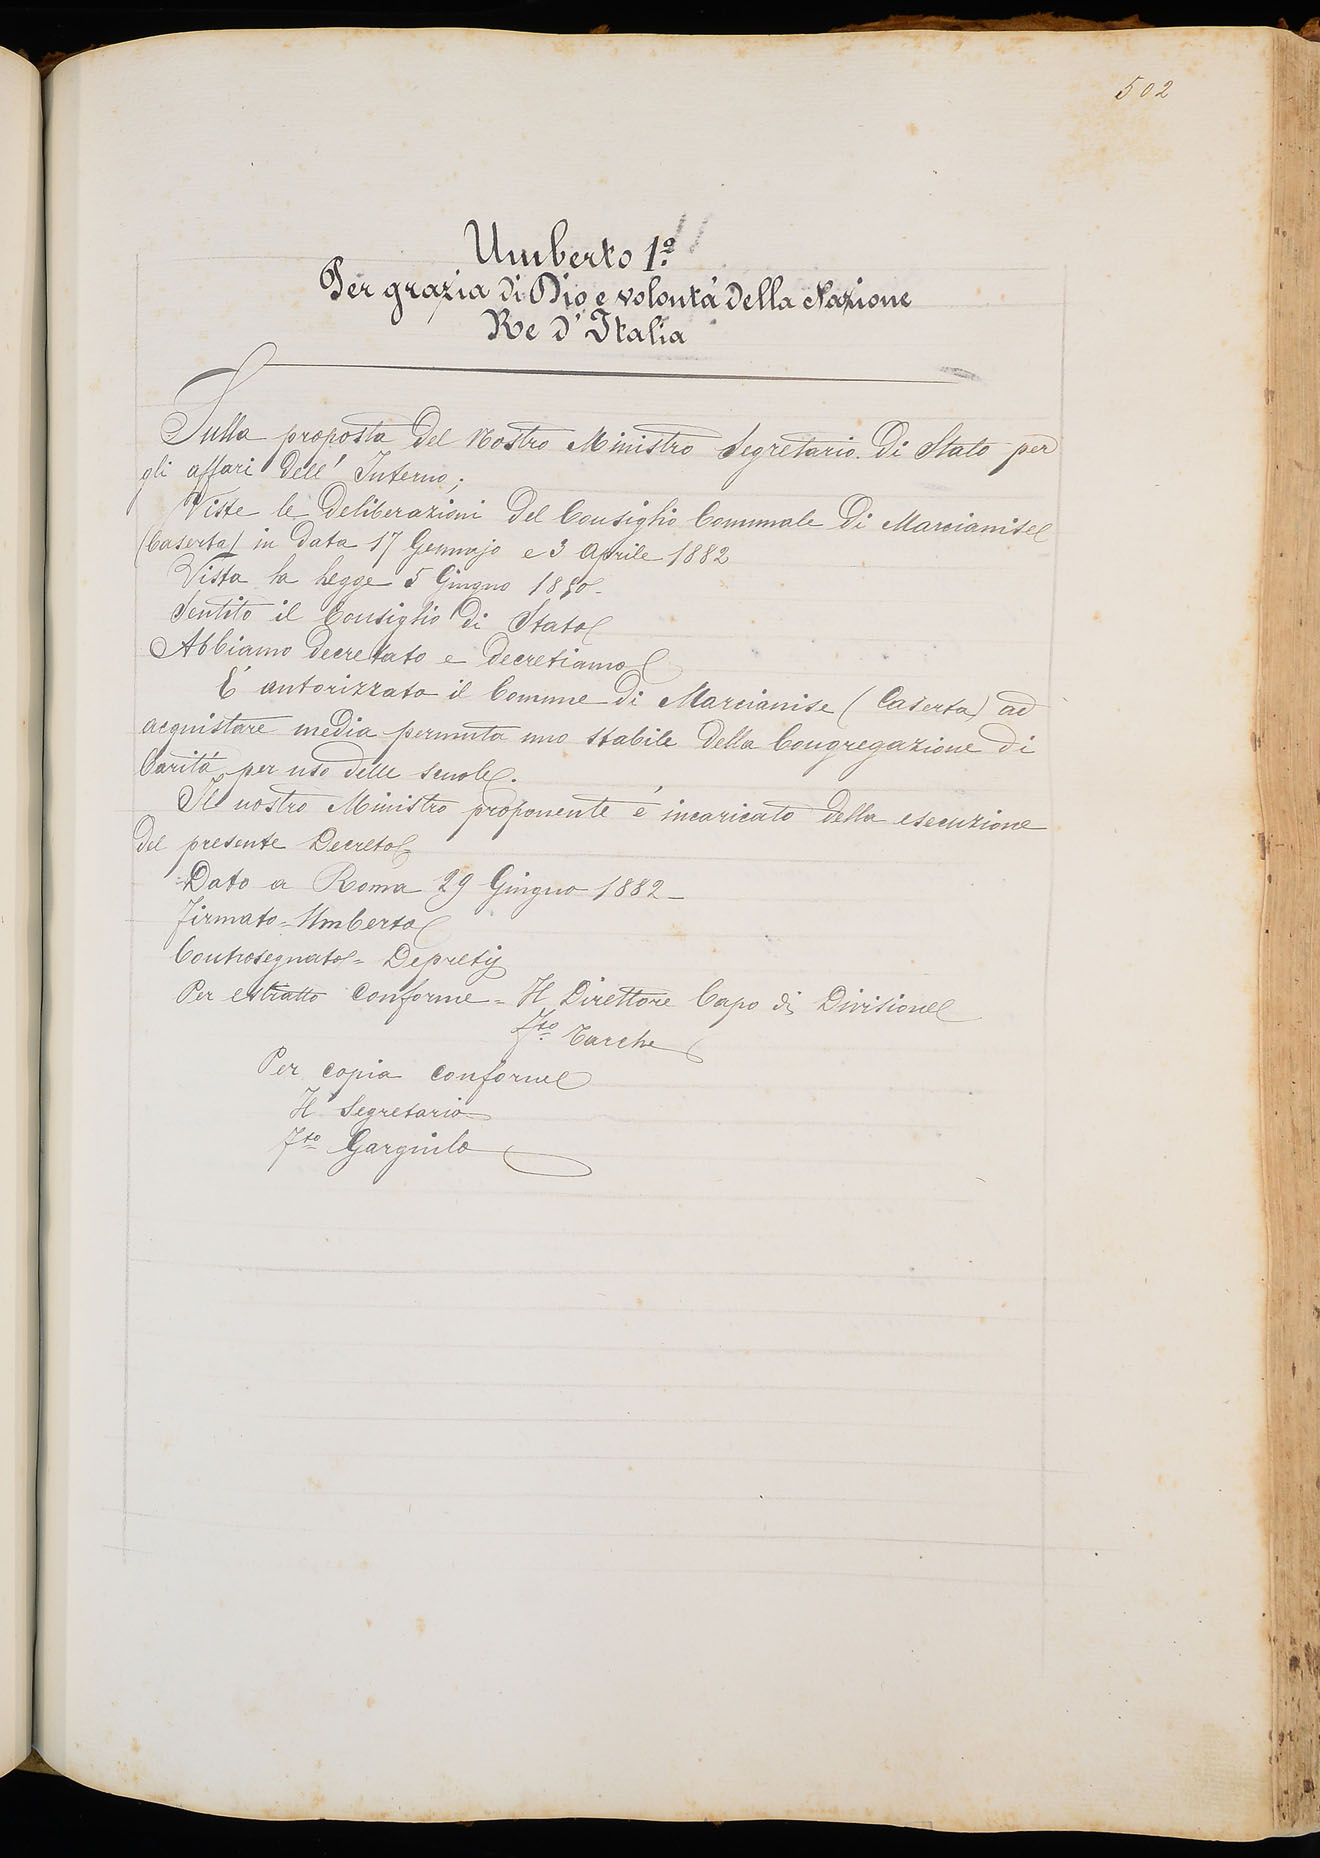 502
Umberto 1º
Per grazia di Dio e volontà della Nazione
Re d'Italia
Sulla proposta del Nostro Ministro Segretario di Stato per
gli affari dell'Interno;
Viste le deliberazioni del Consiglio Comunale di Marcianise
(Caserta) in data 17 Gennajo e 3 Aprile 1882
Vista la legge 5 Giugno 1850 -
Sentito il Consiglio di Stato
Abbiamo decretato e decretiamo
E' autorizzato il Comune di Marcianise (Caserta) ad
acquistare media permuta uno stabile della Congregazione di
Carità per uso delle scuole.
Il nostro Ministro proponente é incaricato della esecuzione
del presente Decreto -
Dato a Roma 29 Giugno 1882 -
Firmato - Umberto
Controsegnato - Depretis
Per estratto conforme - Il Direttore Capo di Divisione
Fto
Per copia conforme
Il Segretario
Fto Gargiulo